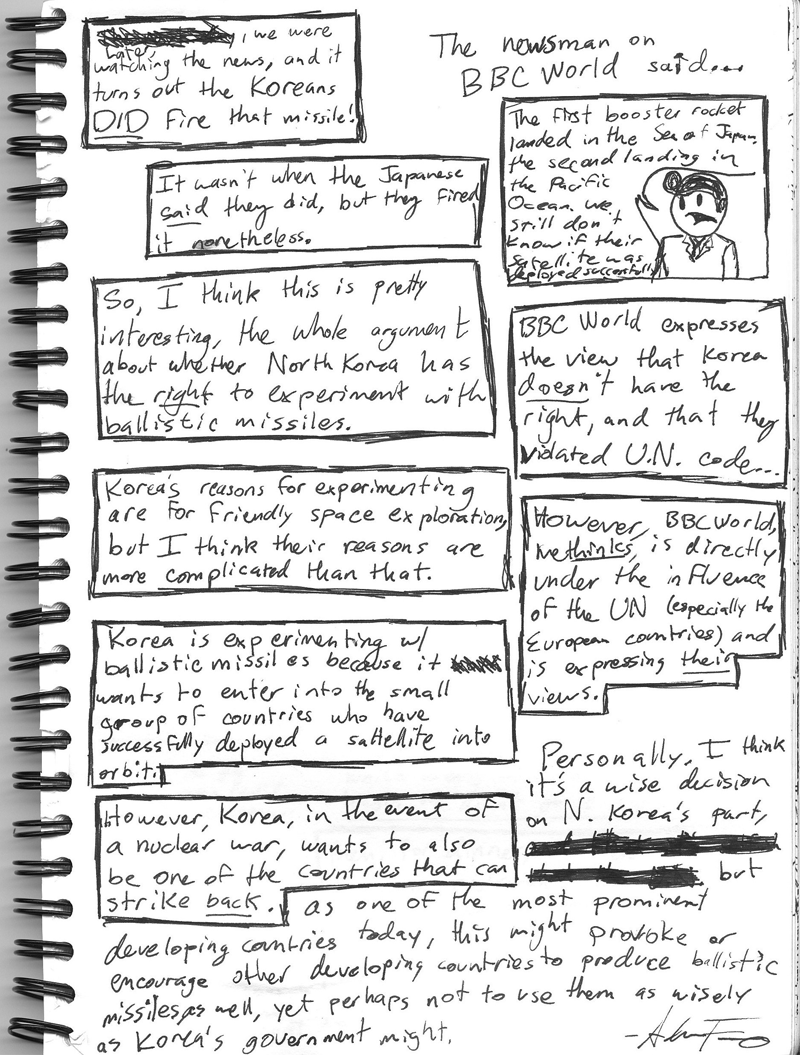 Later, we were
watching the news, and it
turns out the Koreans
DID fire that missile!
It wasn't when the Japanese
said they did, but they fired
it nonetheless.
So, I think this is pretty
interesting, the whole argument
about whether North Korea has
the right to experiment with
ballistic missiles.
Korea's reasons for experimenting
are for friendly space exploration,
but I think their reasons are
more complicated than that.
Korea is experimenting w/
ballistic missiles because it
wants to enter into the small
group of countries who have
successfully deployed a sattellite into
orbit.
However, Korea, in the event of
a nuclear war, wants to also
be one of the countries that can
strike back.
The newsman on
BBC World said...
The first booster rocket
landed in the Sea of Japan,
the second landing in
the Pacific
Ocean. We
still don't
know if their
satellite was
deployed successfully
BBC World expresses
the view that Korea
doesn't have the
right, and that they
violated U.N. code...
However, BBC World,
methinks, is directly
under the influence
of the UN (especially the
European countries) and
is expressing their
views.
Personally, I think
it's a wise decision
on N. Korea's part,
but
as one of the most prominent
developing countries today, this might provoke or
encourage other developing countries to produce ballistic
missiles as well, yet perhaps not to use them as wisely
as Korea's government might.